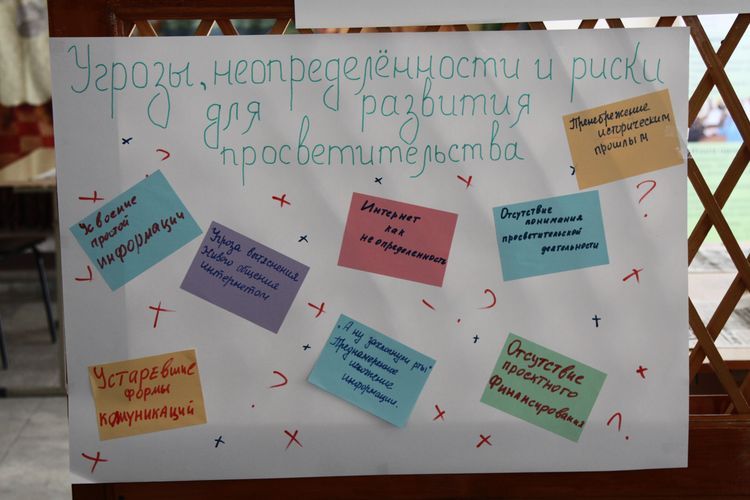 Угрозы, неопределённости и риски
для развития
просветительства
Пренебрежение
историческим
прошлым
Усвоение
простой
информации
Угроза вытеснения
живого общения
интернетом
Интернет
как
не определенность
Отсутствие
понимания
просветительской
деятельности
Устаревшие
формы
комуникаций
„А ну захлопнули рты!"
Преднамеренное
искажение
информации.
Отсутствие
проектного
финансирования